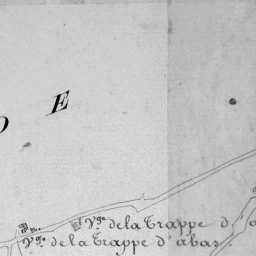 O E
Vge de la Trappe d'
Vge de la Trappe d'abas